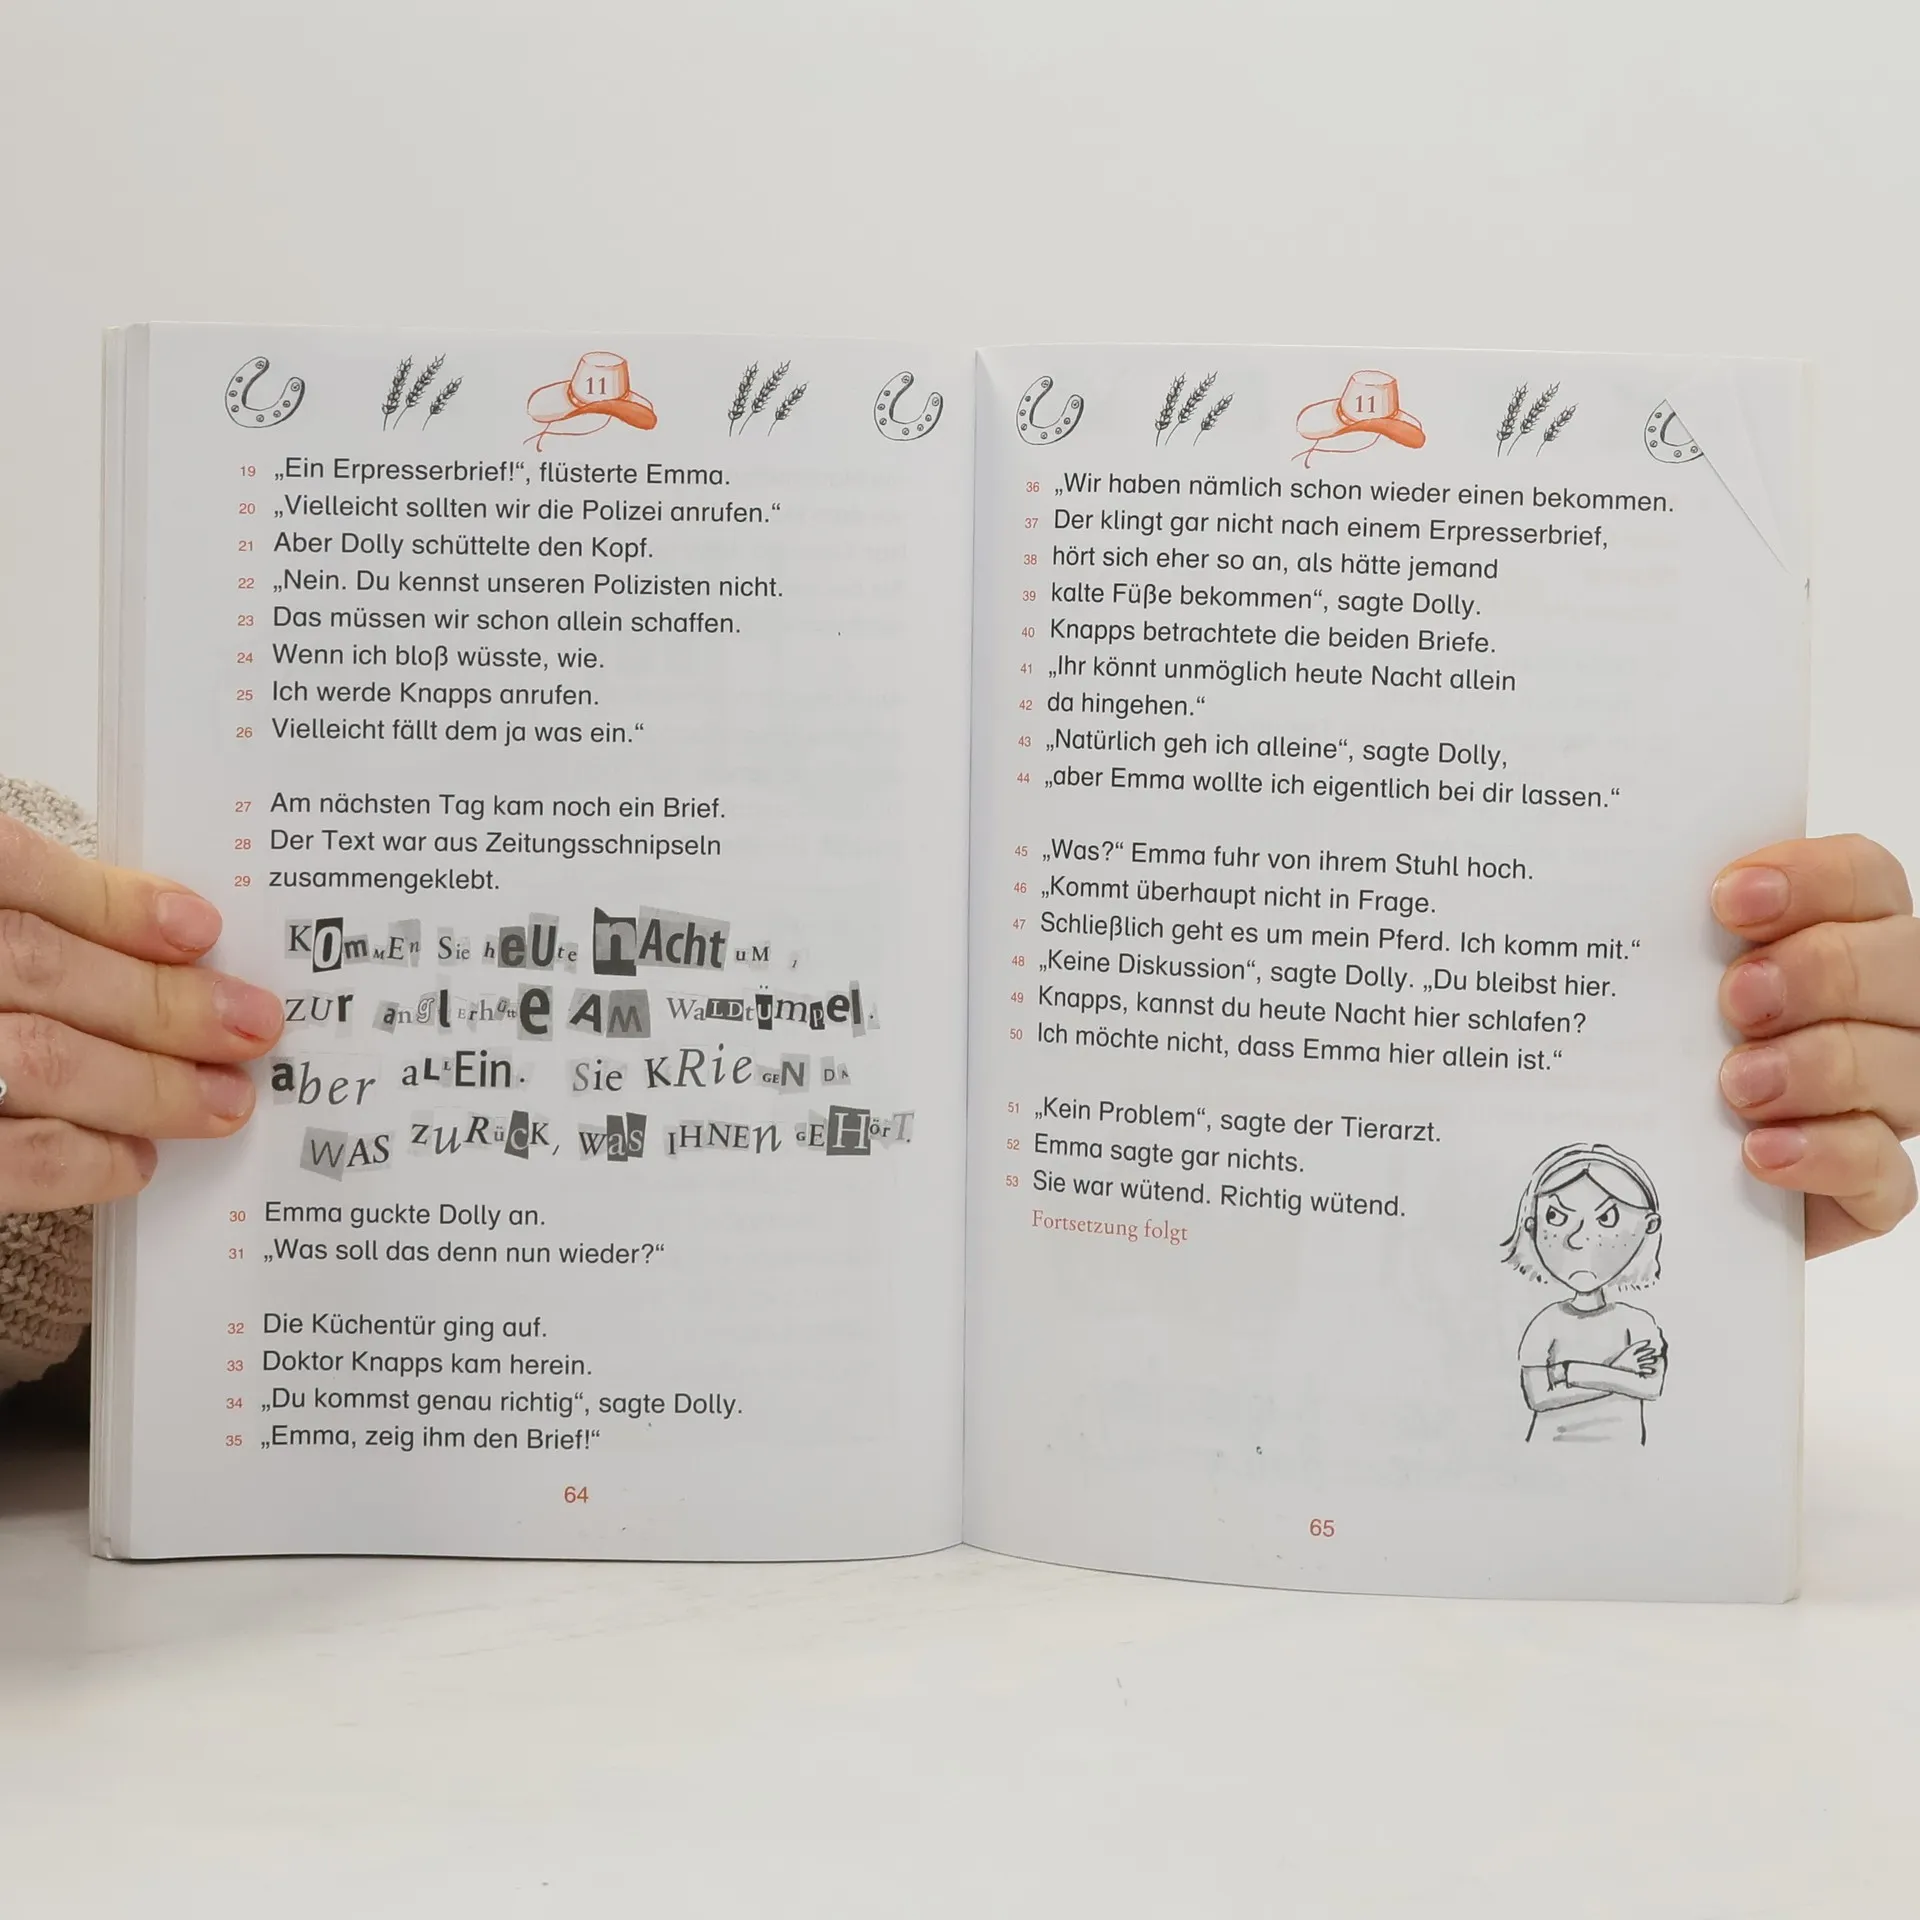 11
19 „Ein Erpresserbrief!“, flüsterte Emma.
20 „Vielleicht sollten wir die Polizei anrufen.“
21 Aber Dolly schüttelte den Kopf.
22 „Nein. Du kennst unseren Polizisten nicht.
23 Das müssen wir schon allein schaffen.
24 Wenn ich bloß wüsste, wie.
25 Ich werde Knapps anrufen.
26 Vielleicht fällt dem ja was ein.“
27 Am nächsten Tag kam noch ein Brief.
28 Der Text war aus Zeitungsschnipseln
29 zusammengeklebt.
KOmMEn Sie hEUte nAcht uM
ZUr anglErhütte AM WaLDtümpel.
aber aLLEin. Sie KRieGEN DA
WAS ZuRücK, was IHNEn GEHörT.
30 Emma guckte Dolly an.
31 „Was soll das denn nun wieder?“
32 Die Küchentür ging auf.
33 Doktor Knapps kam herein.
34 „Du kommst genau richtig“, sagte Dolly.
35 „Emma, zeig ihm den Brief!“
64
11
36 „Wir haben nämlich schon wieder einen bekommen.
37 Der klingt gar nicht nach einem Erpresserbrief,
38 hört sich eher so an, als hätte jemand
39 kalte Füße bekommen“, sagte Dolly.
40 Knapps betrachtete die beiden Briefe.
41 „Ihr könnt unmöglich heute Nacht allein
42 da hingehen.“
43 „Natürlich geh ich alleine“, sagte Dolly,
44 „aber Emma wollte ich eigentlich bei dir lassen.“
45 „Was?“ Emma fuhr von ihrem Stuhl hoch.
46 „Kommt überhaupt nicht in Frage.
47 Schließlich geht es um mein Pferd. Ich komm mit.“
48 „Keine Diskussion“, sagte Dolly. „Du bleibst hier.
49 Knapps, kannst du heute Nacht hier schlafen?
50 Ich möchte nicht, dass Emma hier allein ist.“
51 „Kein Problem“, sagte der Tierarzt.
52 Emma sagte gar nichts.
53 Sie war wütend. Richtig wütend.
Fortsetzung folgt
65